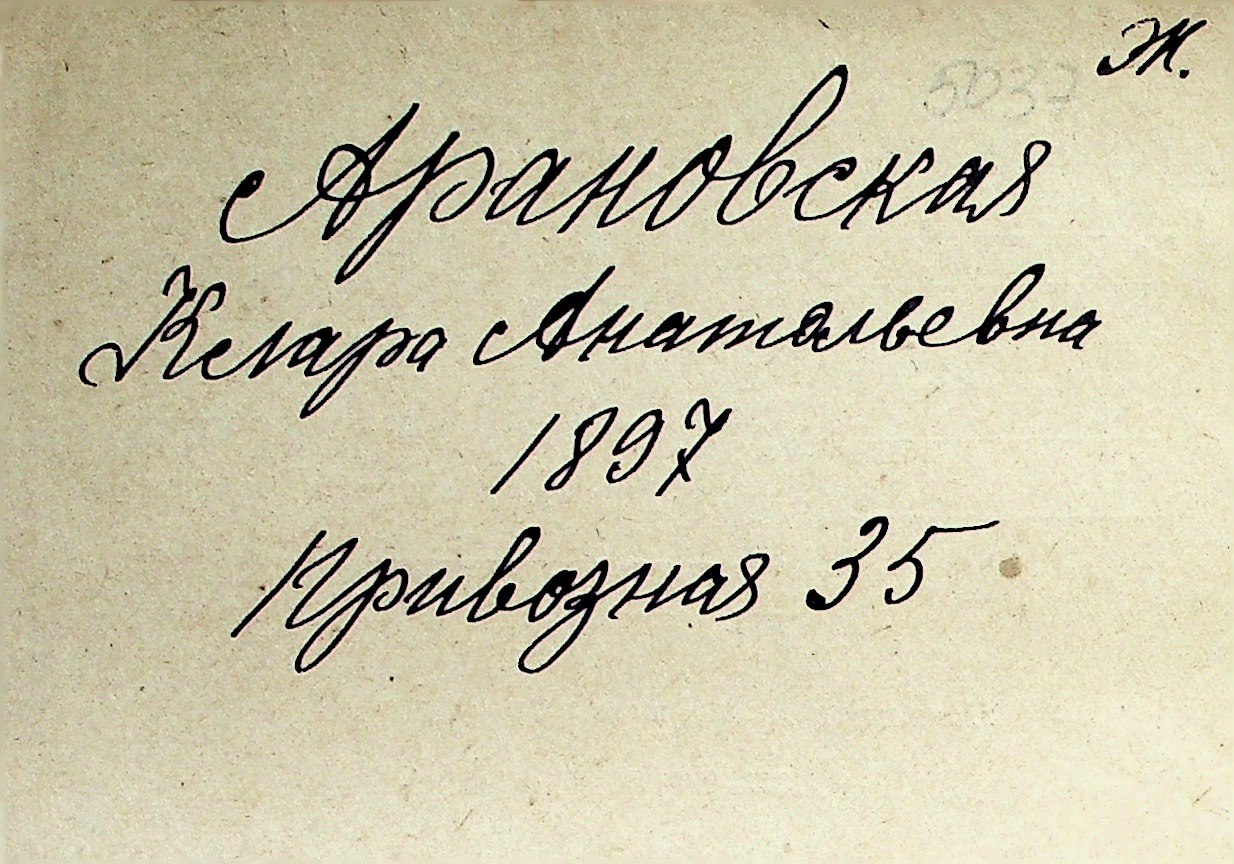 Ж.
5037
Арановская
Клара Анатольевна
1897
Привозная 35